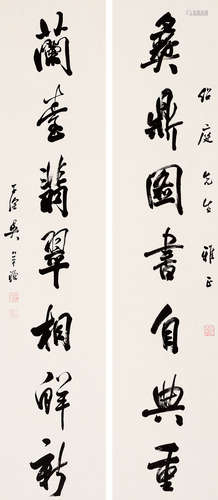 紹庭先生雅正
彝鼎圖書自典重
蘭臺翡翠相鮮新
子深吳華源